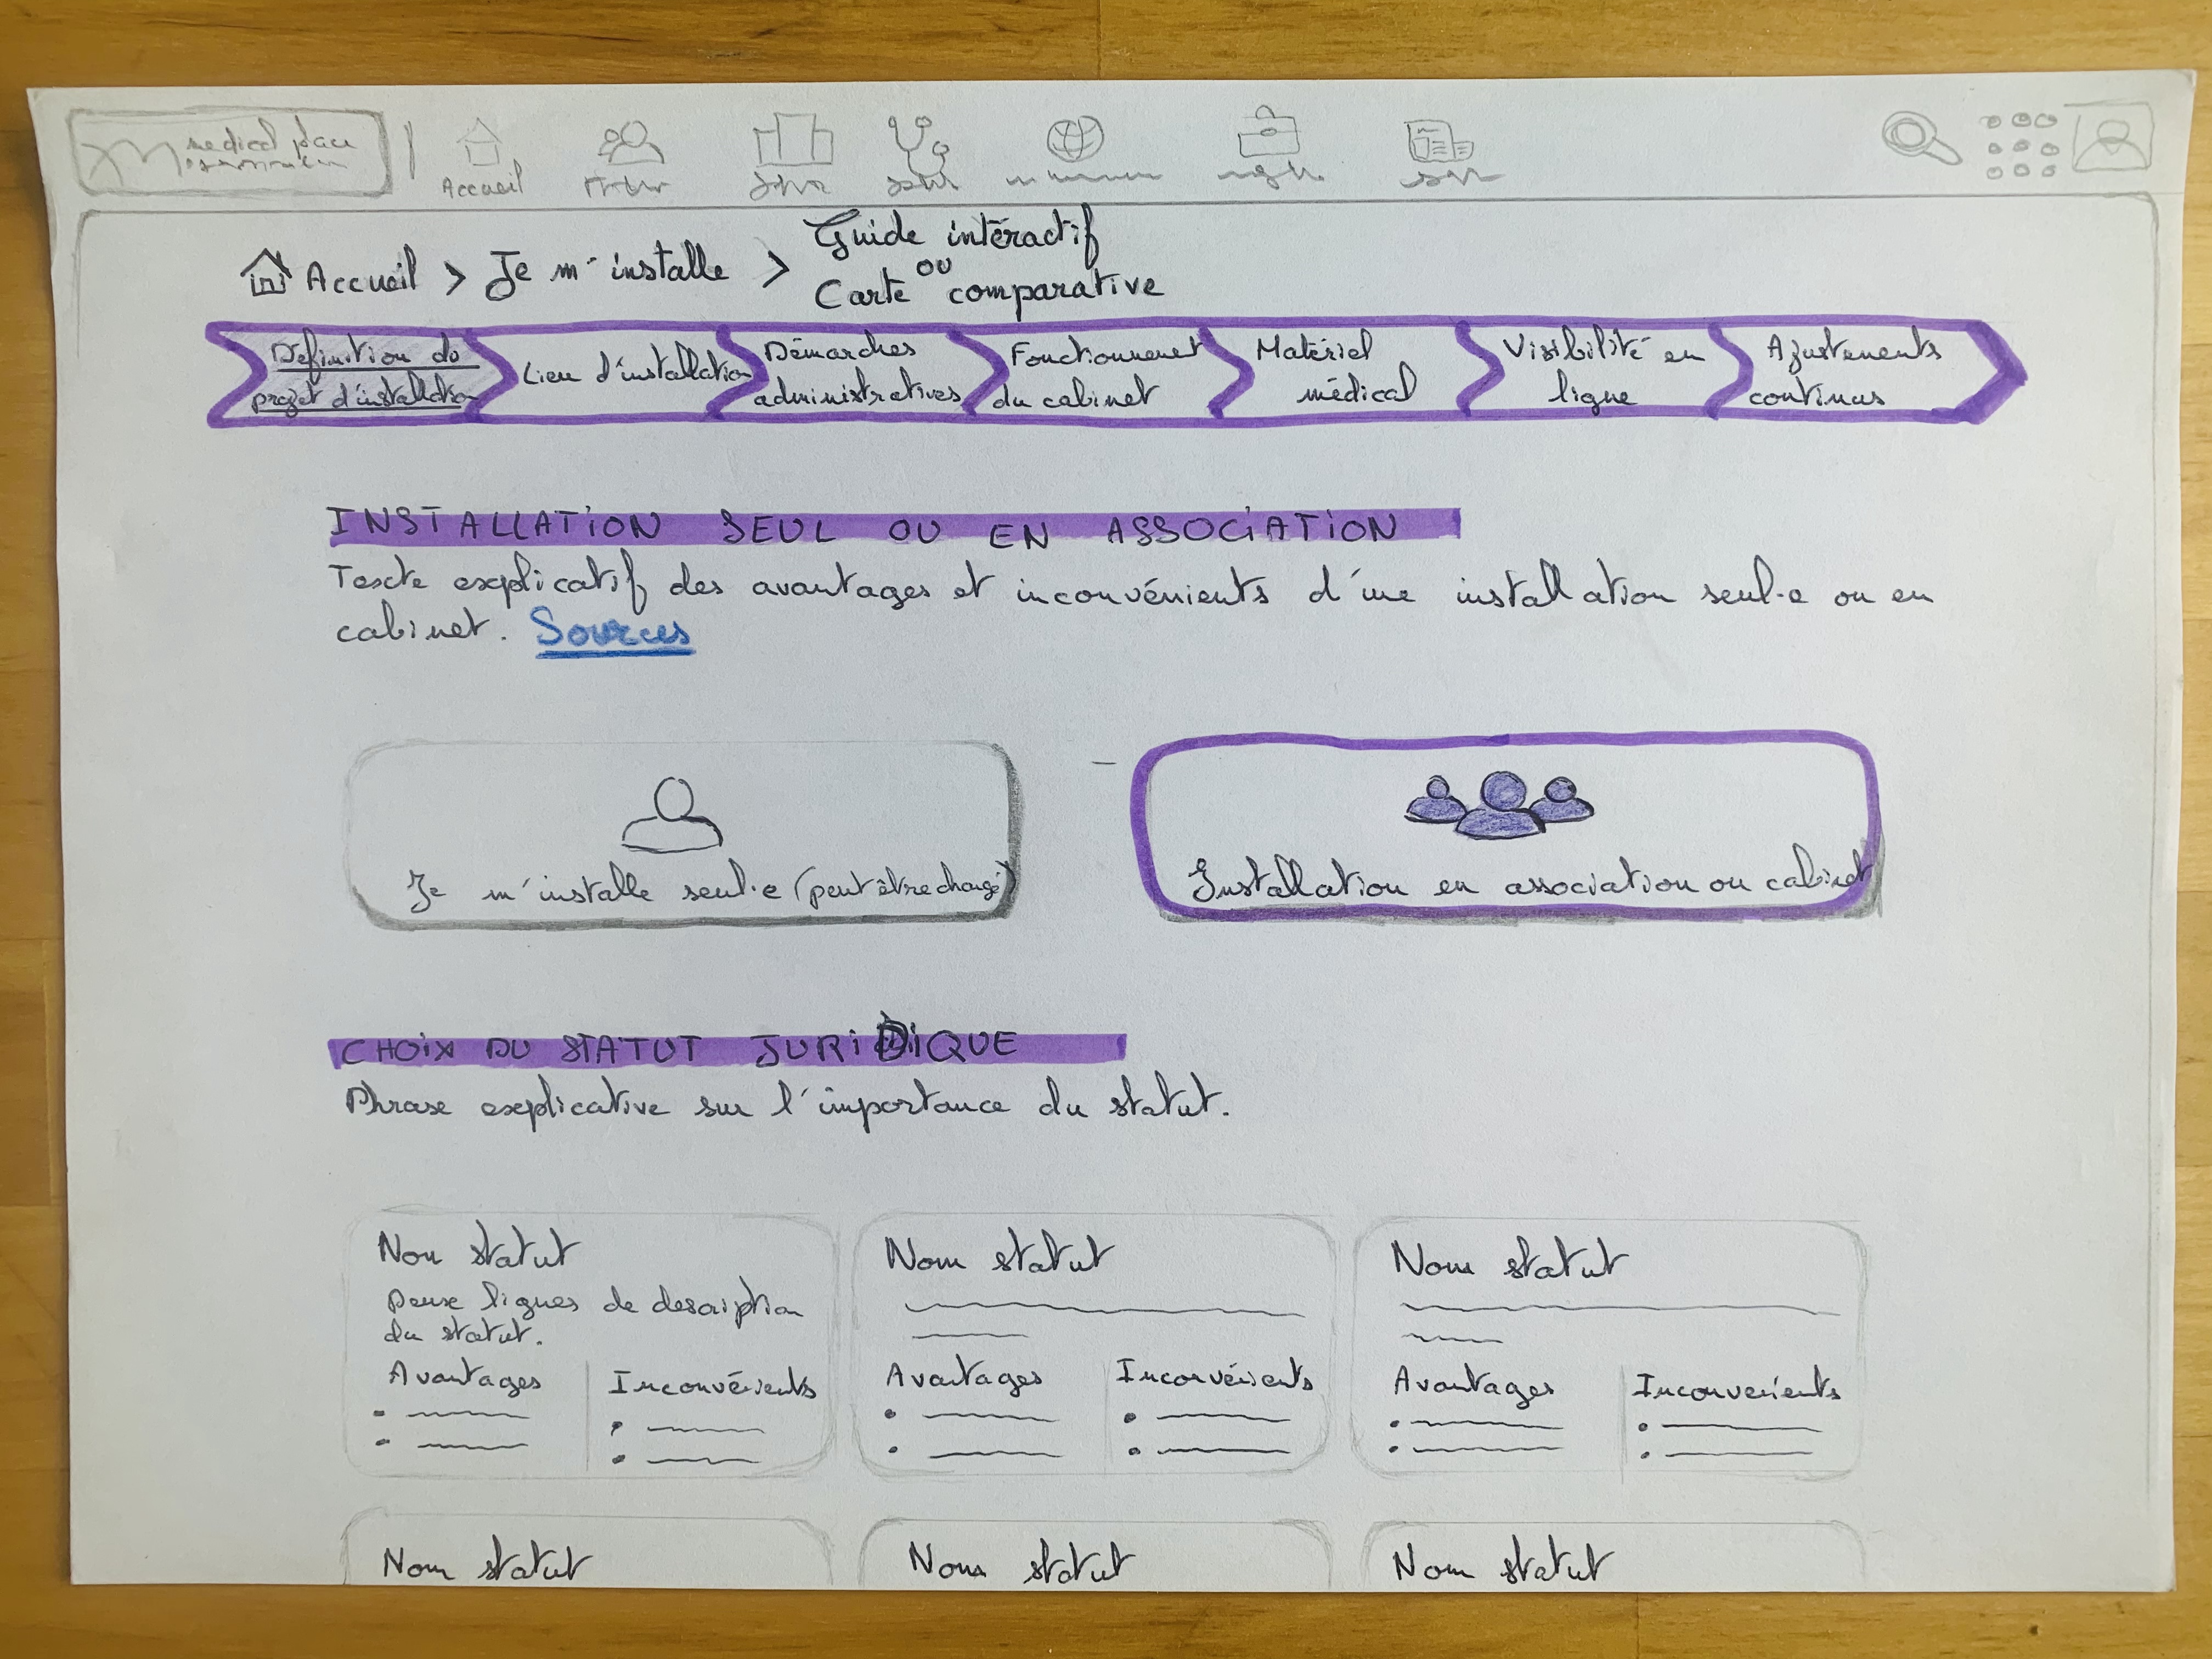 medical place
Accueil
Accueil > Je m'installe > Guide intéractif
ou
Carte comparative
Définition du
projet d'installation
Lieu d'installation
Démarches
administratives
Fonctionnement
du cabinet
Matériel
médical
Visibilité en
ligne
Ajustements
continus
INSTALLATION SEUL OU EN ASSOCIATION
Texte explicatif des avantages et inconvénients d'une installation seul·e ou en
cabinet. Sources
Je m'installe seul·e (peut être changé)
Installation en association ou cabinet
CHOIX DU STATUT JURIDIQUE
Phrase explicative sur l'importance du statut.
Nom statut
Deux lignes de description
du statut.
Avantages
Inconvénients
Nom statut
Avantages
Inconvénients
Nom statut
Avantages
Inconvenients
Nom statut
Nom statut
Nom statut